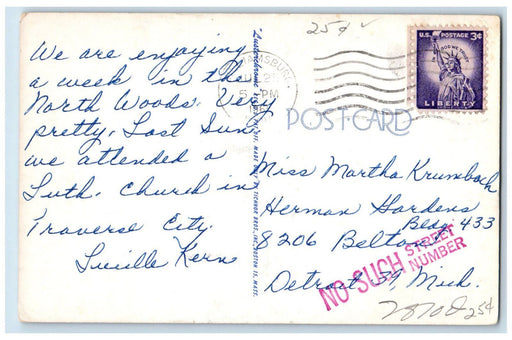 25¢
U.S. POSTAGE 3¢
IN GOD WE TRUST
LIBERTY
5 PM
We are enjoying
a week in the
North Woods. Very
pretty. Last Sun.
we attended a
Luth. Church in
Traverse City.
Lucille Kern
POST CARD
Miss Martha Krumbach
Herman Gardens
Bldg. 433
8206 Belton
Detroit 39, Mich.
NO SUCH STREET
NUMBER
25¢